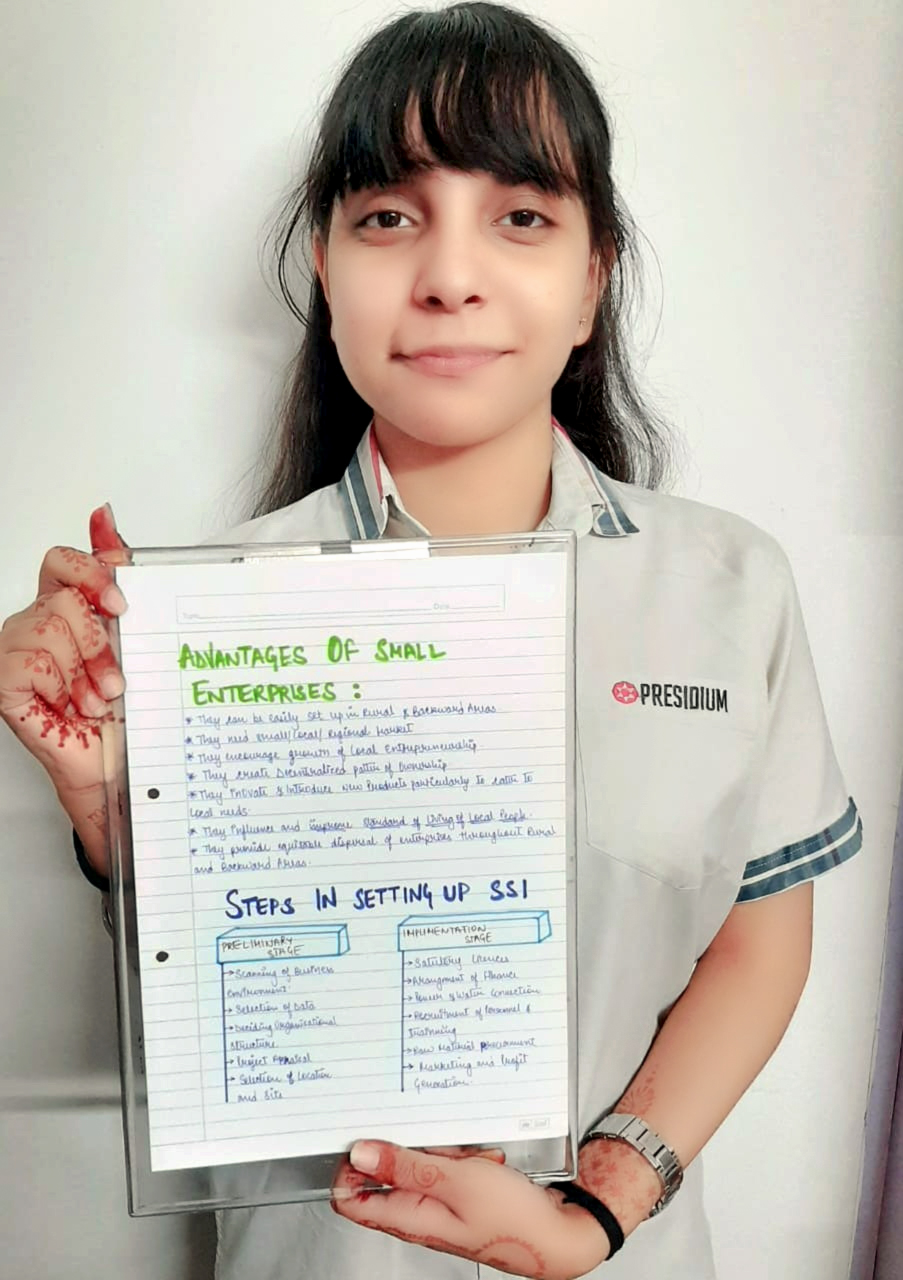 Date
ADVANTAGES OF SMALL
ENTERPRISES :
* They can be easily set up in Rural & Backward Areas
* They need small/local/Regional Market
* They encourage growth of Local Entrepreneurship
* They create Decentralized pattern of Ownership
* They Inovate & Introduce New Products particularly to cater to
Local needs.
* They Influence and improve standard of living of Local People.
* They provide equitable dispersal of enterprises throughout Rural
and Backward Areas.
PRESIDIUM
STEPS IN SETTING UP SSI
PRELIMINARY
STAGE
→ Scanning of Business
Environment
→ Selection of Data
→ Deciding Organisational
Structure
→ Project Appraisal
→ Selection of Location
and Site
IMPLIMENTATION
STAGE
→ Satutory Licences
→ Arrangment of Finance
→ Power & Water Connection
→ Recruitment of Personnel &
Trainning
→ Raw Material procurement
→ Marketing and Profit
Generation.